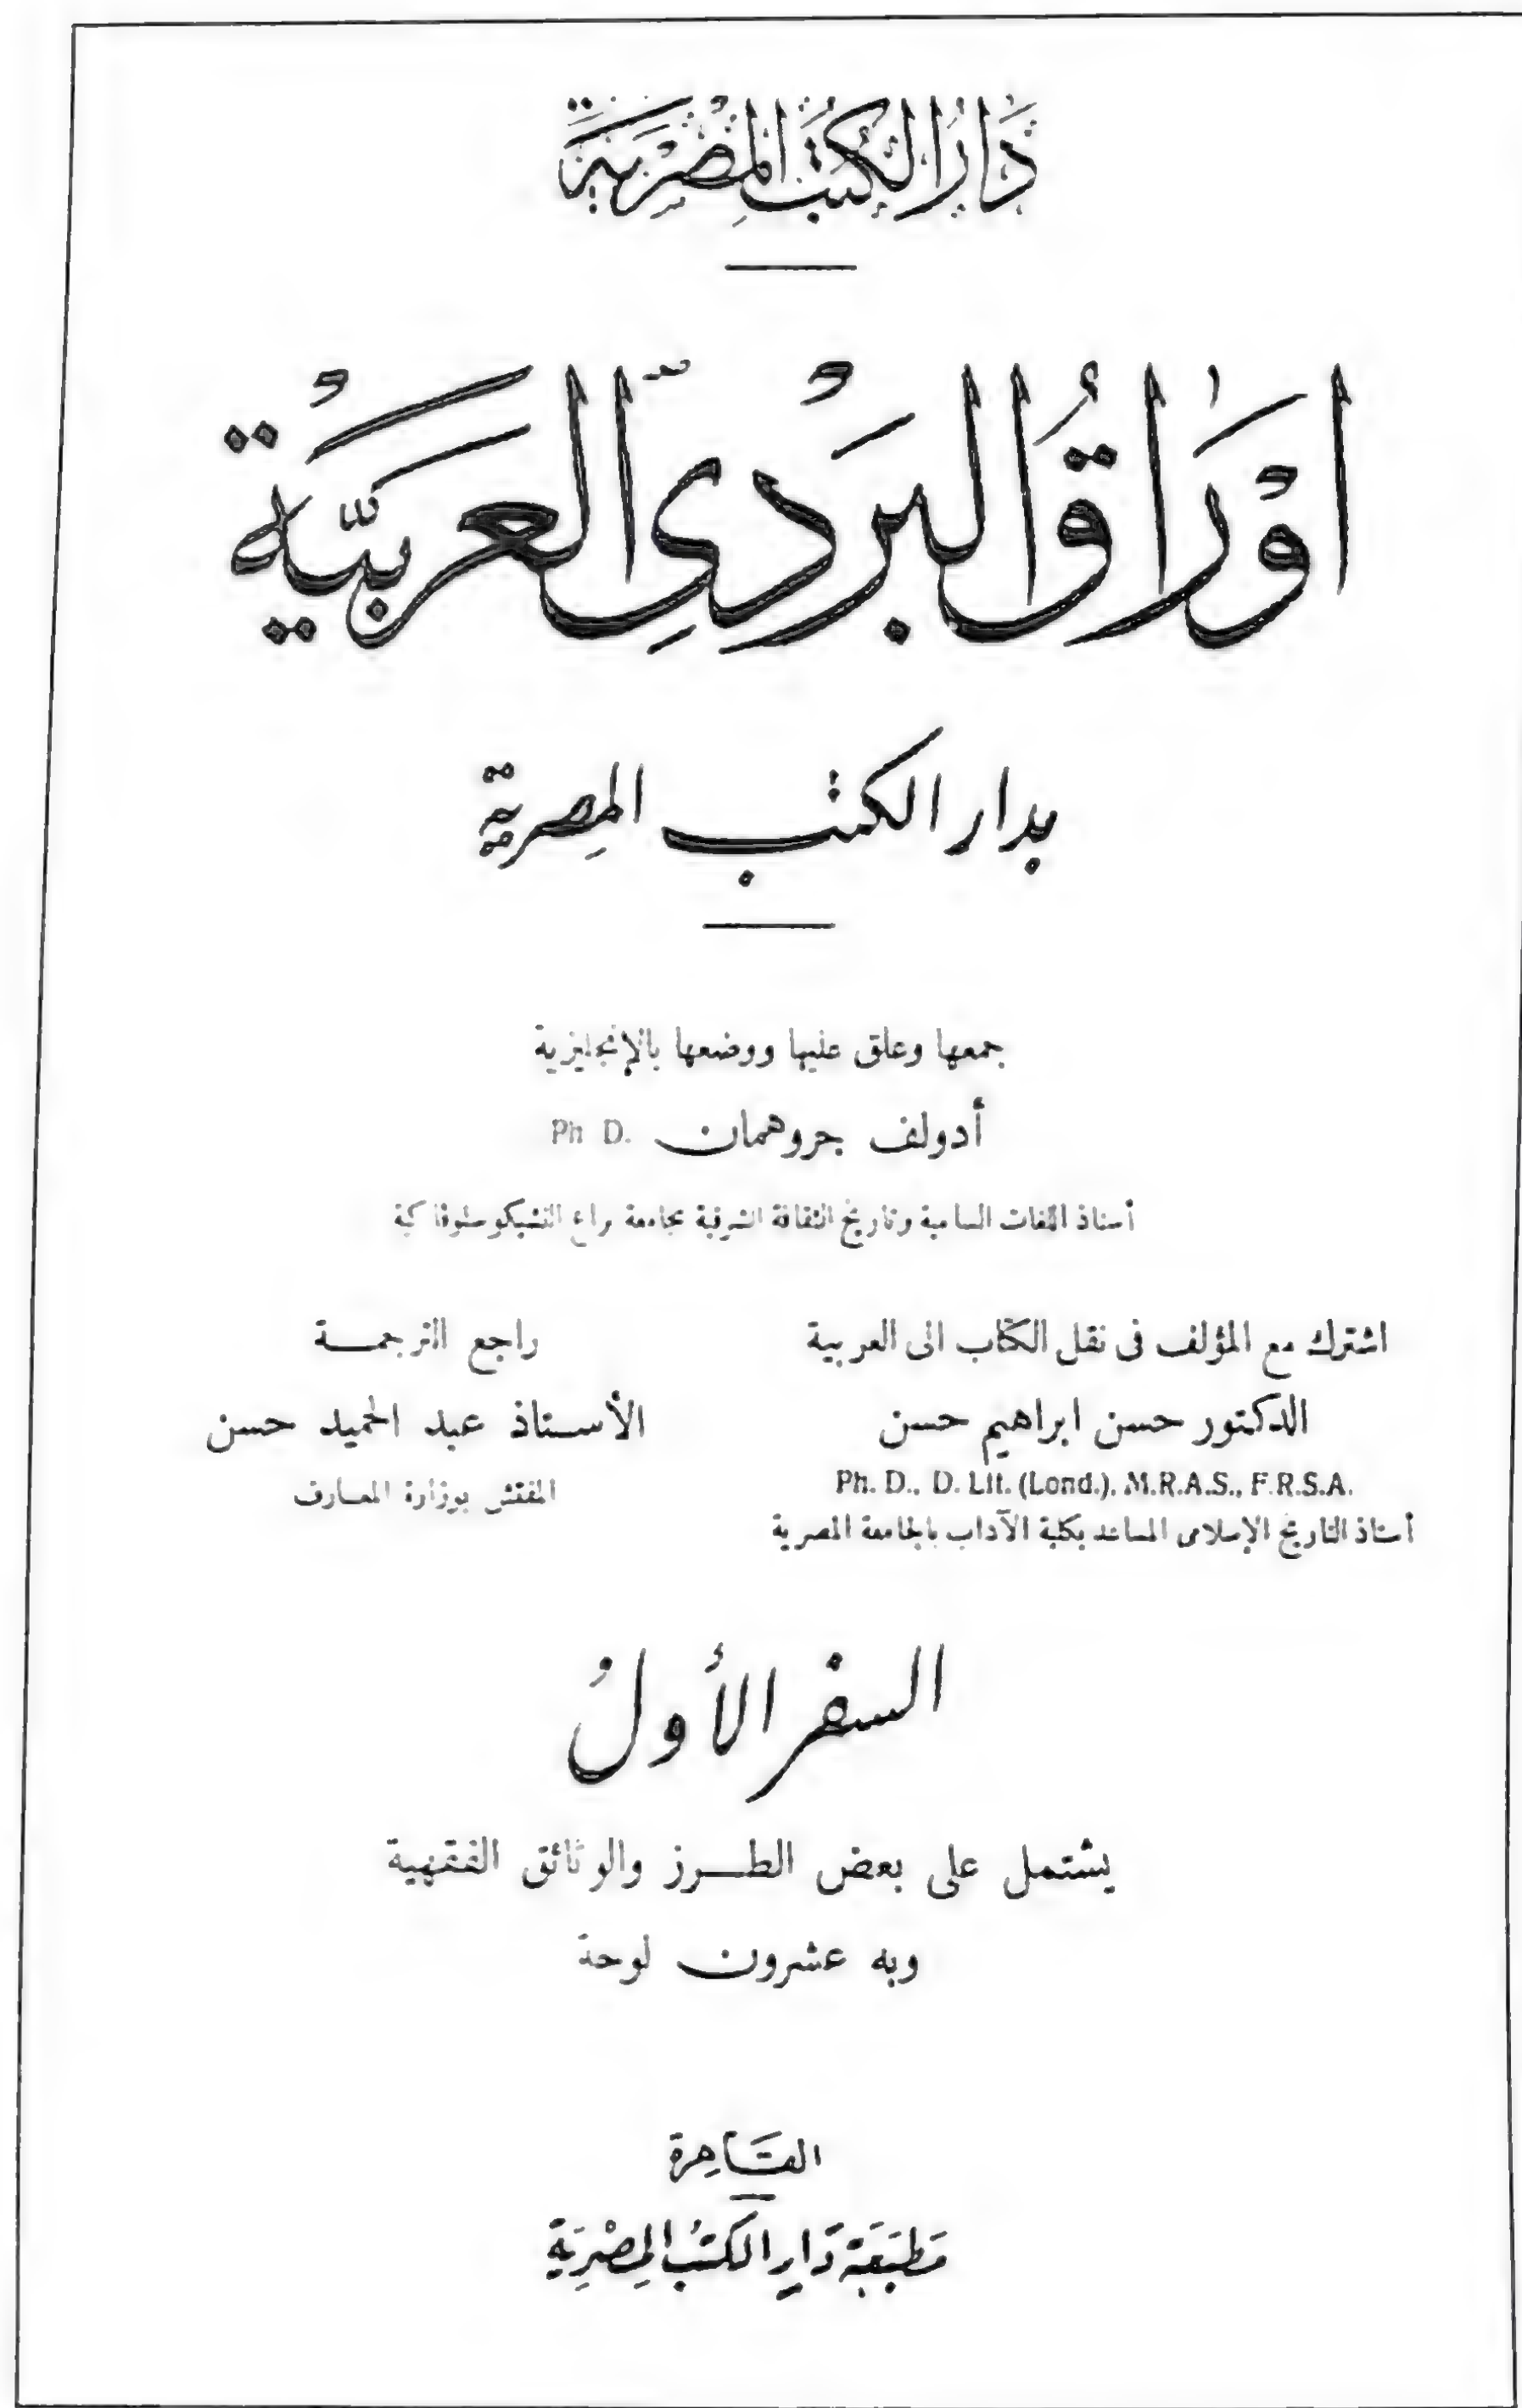 دَارُ الكُتُبِ المِصْرِيَّة
اوْرَاقُ البَرْدِىِّ العَرَبِيَّة
بدار الكتب المِصرية
جمعها وعلق عليها ووضعها بالإنجليزية
أدولف جروهمان Ph D.
أستاذ اللغات السامية وتاريخ الثقافة الشرقية بجامعة براغ التشيكوسلوفاكية
اشترك مع المؤلف فى نقل الكتاب الى العربية
الدكتور حسن ابراهيم حسن
Ph. D., D. Lit. (Lond.), M.R.A.S., F.R.S.A.
أستاذ التاريخ الإسلامى المساعد بكلية الآداب بالجامعة المصرية
راجع الترجمة
الأستاذ عبد الحميد حسن
المفتش بوزارة المعارف
السفر الأول
يشتمل على بعض الطرز والوثائق الفقهية
وبه عشرون لوحة
القَاهِرة
مَطبَعَة دَارِ الكتُب المِصْرِيَة